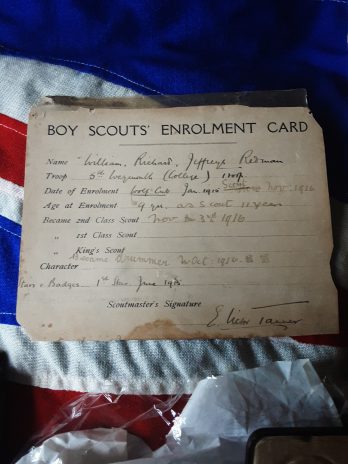 BOY SCOUTS' ENROLMENT CARD
Name William, Richard, Jeffreys Redman
Troop 5th Weymouth (College)
Date of Enrolment Wolf-Cub Jan 1915 Scout Nov: 1916
Age at Enrolment 9 yrs, as Scout 11 years
Became 2nd Class Scout Nov 3rd 1916
„ 1st Class Scout
„ King's Scout
Became Drummer Oct: 1916
Character
Stars & Badges 1st Star June 1915
Scoutmaster's Signature
E. Tanner